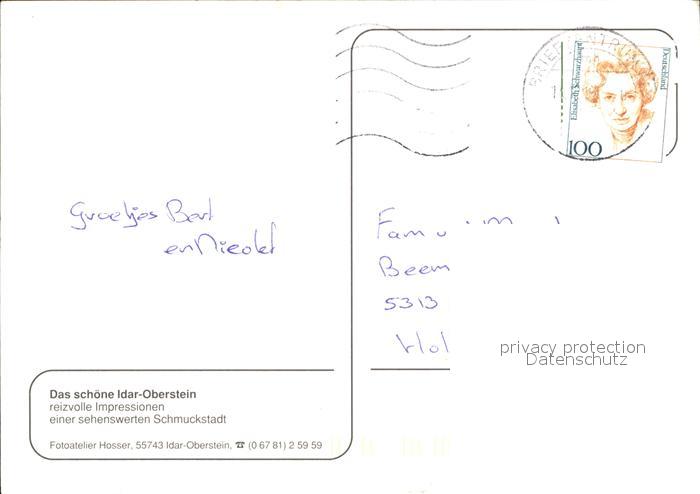 BRIEFZENTRUM
Deutschland
Elisabeth Schwarzhaupt
100
Groetjes Bert
en Nicolet
Fam
Beem
5313
Hol
privacy protection
Datenschutz
Das schöne Idar-Oberstein
reizvolle Impressionen
einer sehenswerten Schmuckstadt
Fotoatelier Hosser, 55743 Idar-Oberstein, ☎ (0 67 81) 2 59 59